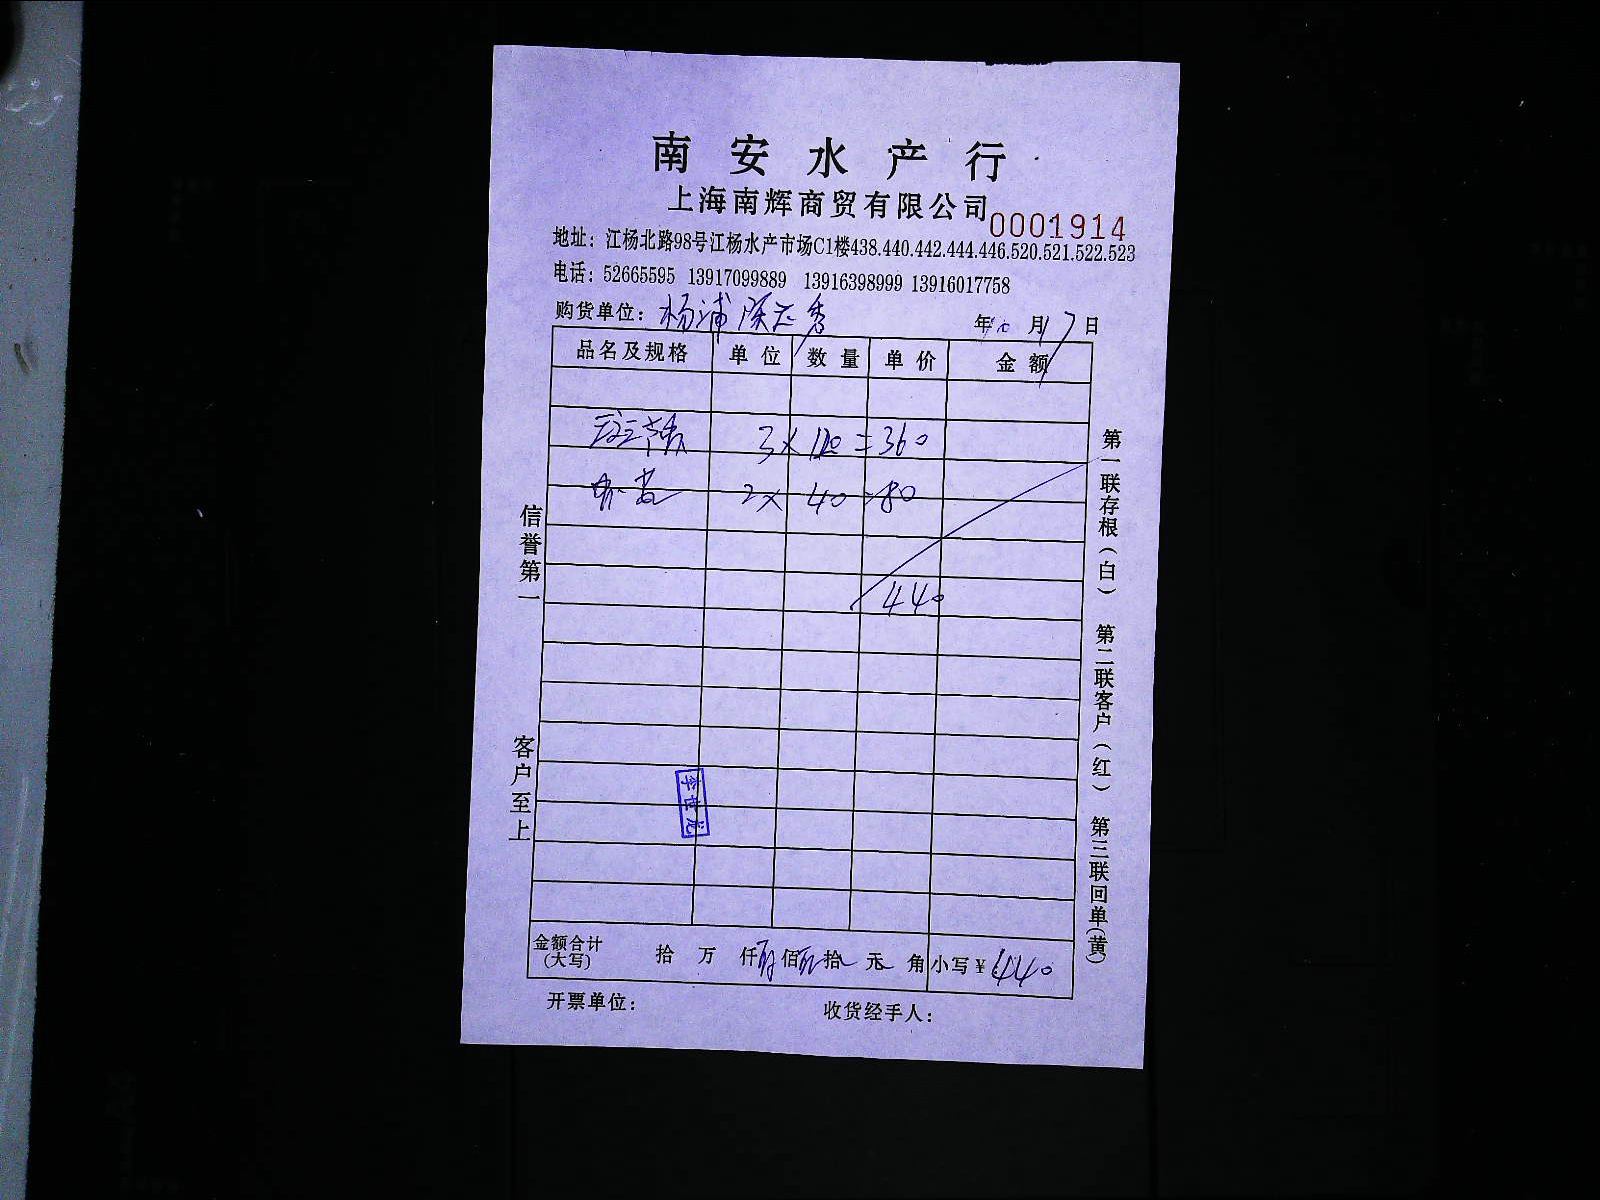 南安水产行
上海南辉商贸有限公司
0001914
地址：江杨北路98号江杨水产市场C1楼438.440.442.444.446.520.521.522.523
电话：52665595 13917099889 13916398999 13916017758
购货单位：杨浦陈 秀 年10月17日
品名及规格 单位 数量 单价 金额
3×120=360
2×40=80
440
李世龙
金额合计(大写) 拾 万 仟 佰 拾 元 角 小写¥440
开票单位： 收货经手人：
信誉第一
客户至上
第一联存根(白) 第二联客户(红) 第三联回单(黄)